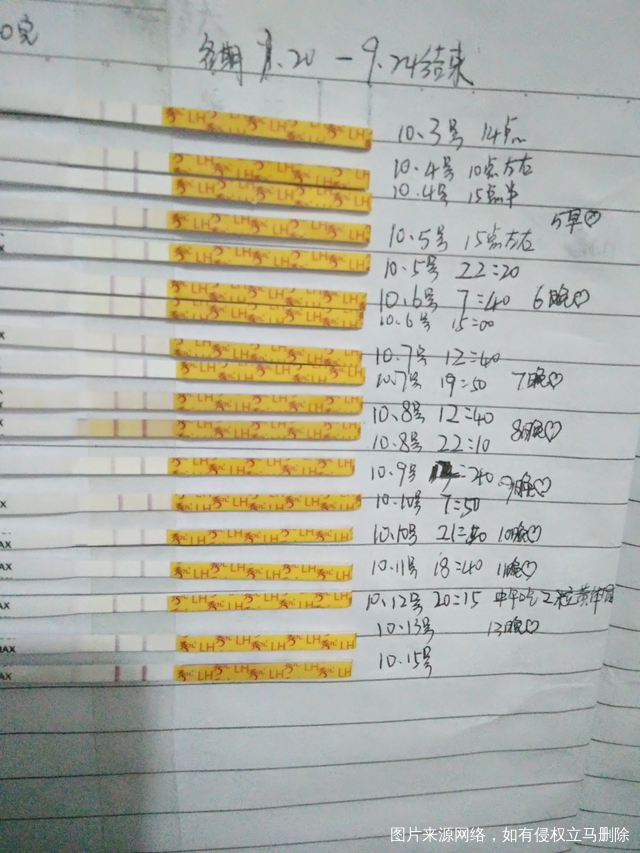 0克
经期 9.20 - 9.24结束
10.3号 14点
10.4号 10点左右
10.4号 15点半
5早♡
10.5号 15点左右
10.5号 22:20
10.6号 7:40 6晚♡
10.6号 15:00
10.7号 12:40
10.7号 19:50 7晚♡
10.8号 12:40
8晚♡
10.8号 22:10
10.9号 :40 9晚♡
10.10号 7:50
10.10号 21:40 10晚♡
10.11号 18:40 11晚♡
10.12号 20:15 中午吃2粒黄体酮
10.13号 13晚♡
10.15号
LH LH LH LH
MAX
图片来源网络，如有侵权立马删除